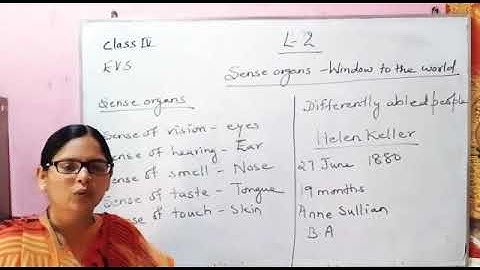 Class IV
EVS
L-2
Sense organs - Window to the world
Sense organs
Sense of vision - eyes
Sense of hearing - Ear
Sense of smell - Nose
Sense of taste - Tongue
of touch - Skin
Differently abled people
Helen Keller
27 June 1880
19 months
Anne Sullian
B.A